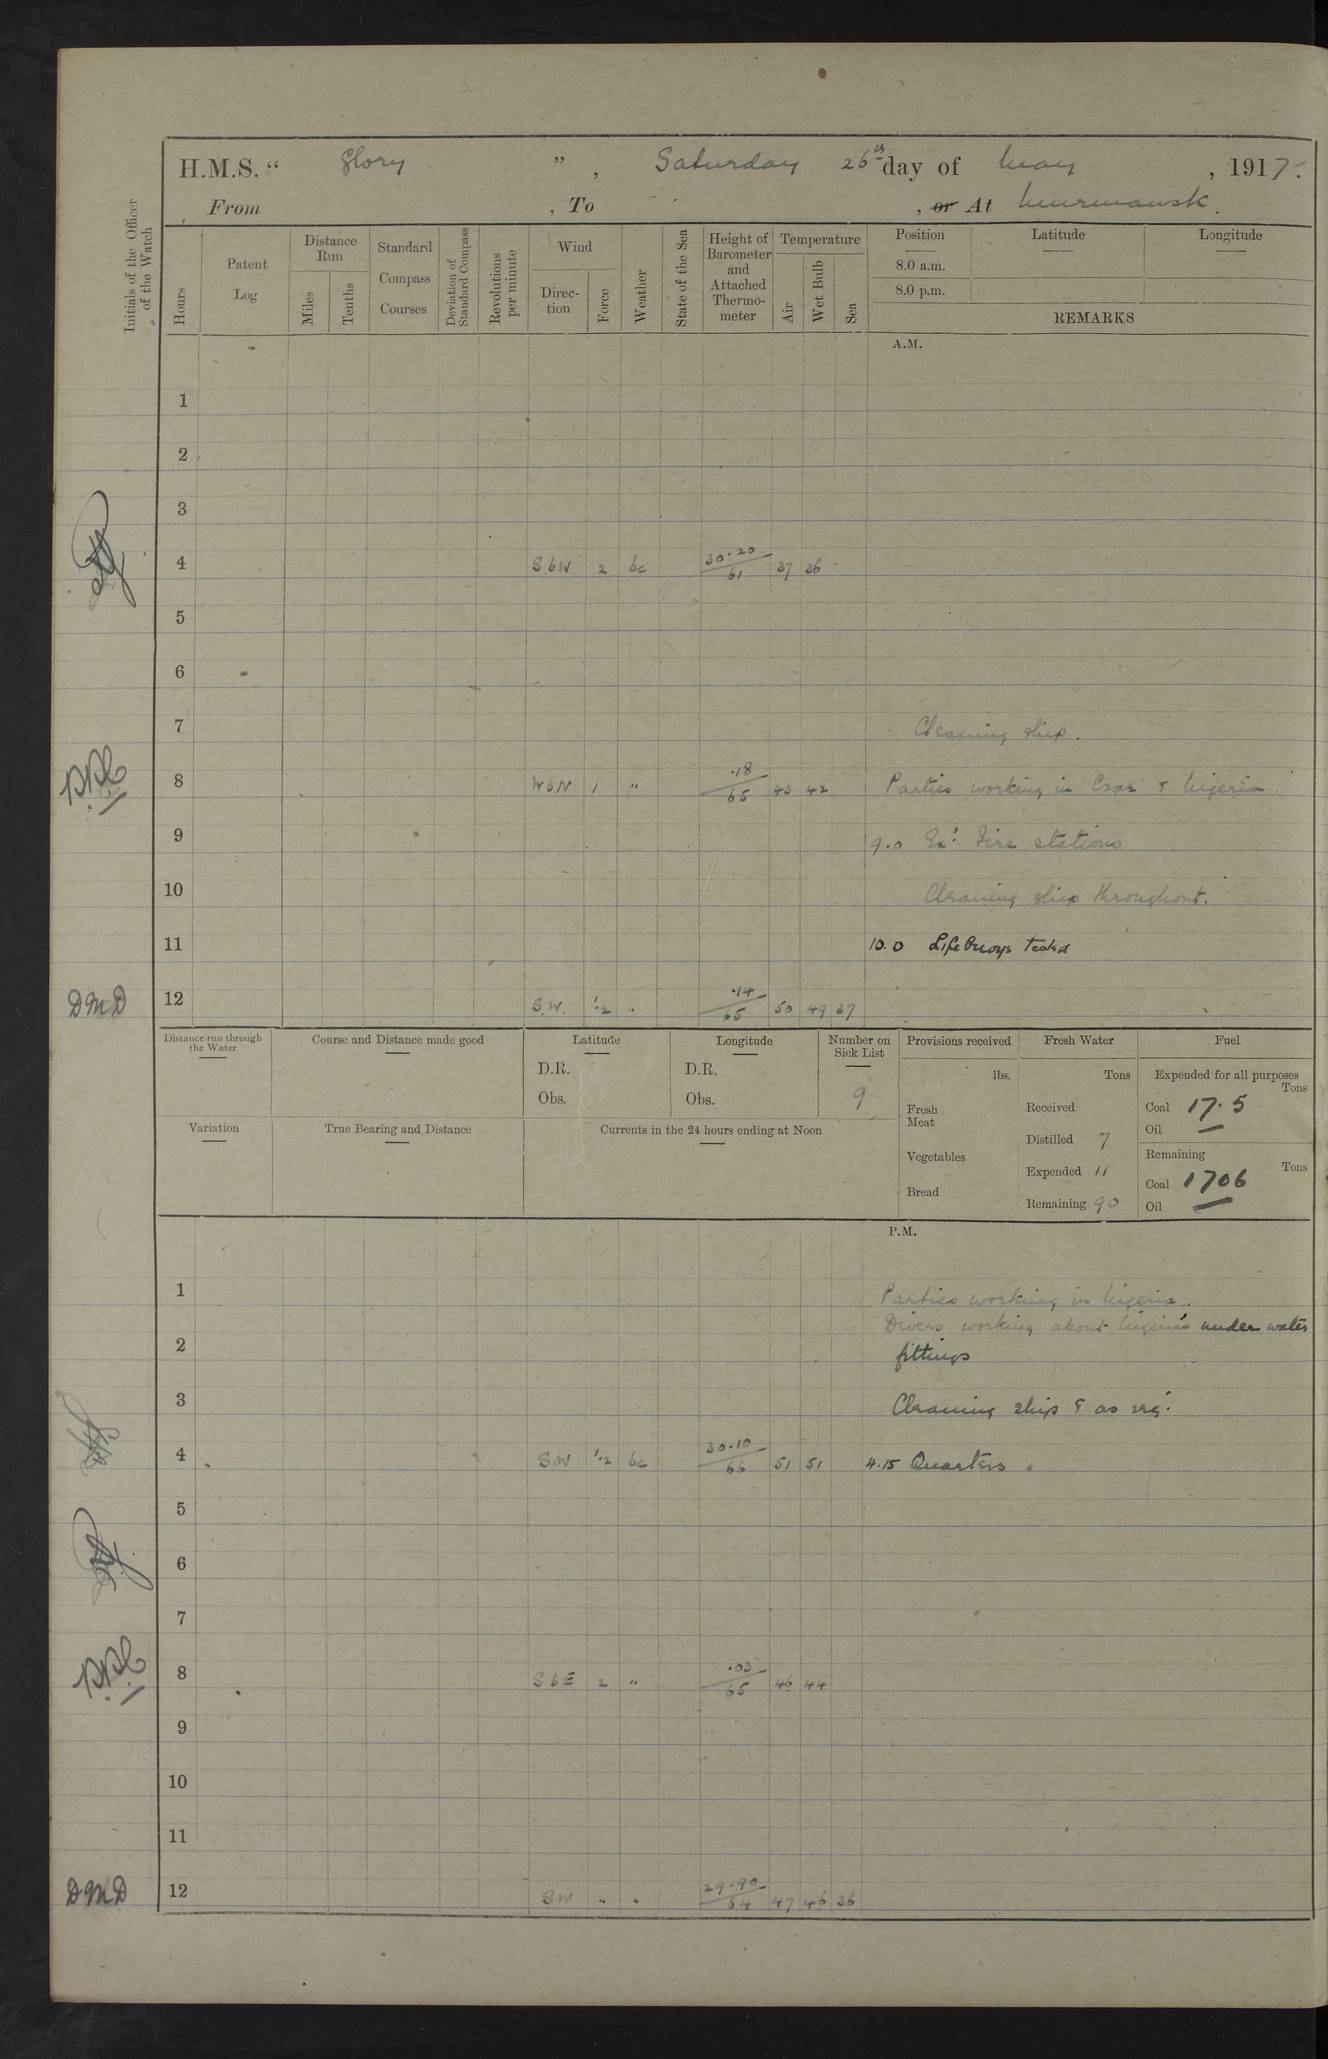 H.M.S. “ Glory ”, Saturday 26th day of May, 1917.
From , To , or At Murmansk.
Initials of the Officer of the Watch
Hours
Patent Log
Distance Run
Miles
Tenths
Standard Compass Courses
Deviation of Standard Compass
Revolutions per minute
Wind
Direction
Force
Weather
State of the Sea
Height of Barometer and Attached Thermometer
Temperature
Air
Wet Bulb
Sea
Position
8.0 a.m.
8.0 p.m.
Latitude
Longitude
REMARKS
A.M.
1
2
3
4 SbW 2 bc 30.20/61 37 36
5
6
7 Cleaning ship.
8 WbN 1 " .18/65 43 42 Parties working in Czar & Nigeria.
9 9.0 Ex: Fire stations
10 Cleaning ship throughout.
11 10.0 Life Buoys tested
DMD 12 S.W. 1.2 " .14/65 50 49 37
Distance run through the Water
Course and Distance made good
Latitude
D.R.
Obs.
Longitude
D.R.
Obs.
Number on Sick List
9
Variation
True Bearing and Distance
Currents in the 24 hours ending at Noon
Provisions received
lbs.
Fresh Meat
Vegetables
Bread
Fresh Water
Tons
Received
Distilled 7
Expended 11
Remaining 90
Fuel
Expended for all purposes
Tons
Coal 17.5
Oil —
Remaining
Tons
Coal 1706
Oil —
P.M.
1 Parties working in Nigeria.
Divers working about Nigeria's under water
2 fittings
3 Cleaning ship & as req.
4 SW 1.2 bc 30.10/66 51 51 4.15 Quarters.
5
6
7
8 SbE 2 " .03/65 46 44
9
10
11
DMD 12 SW " " 29.90/64 47 46 36